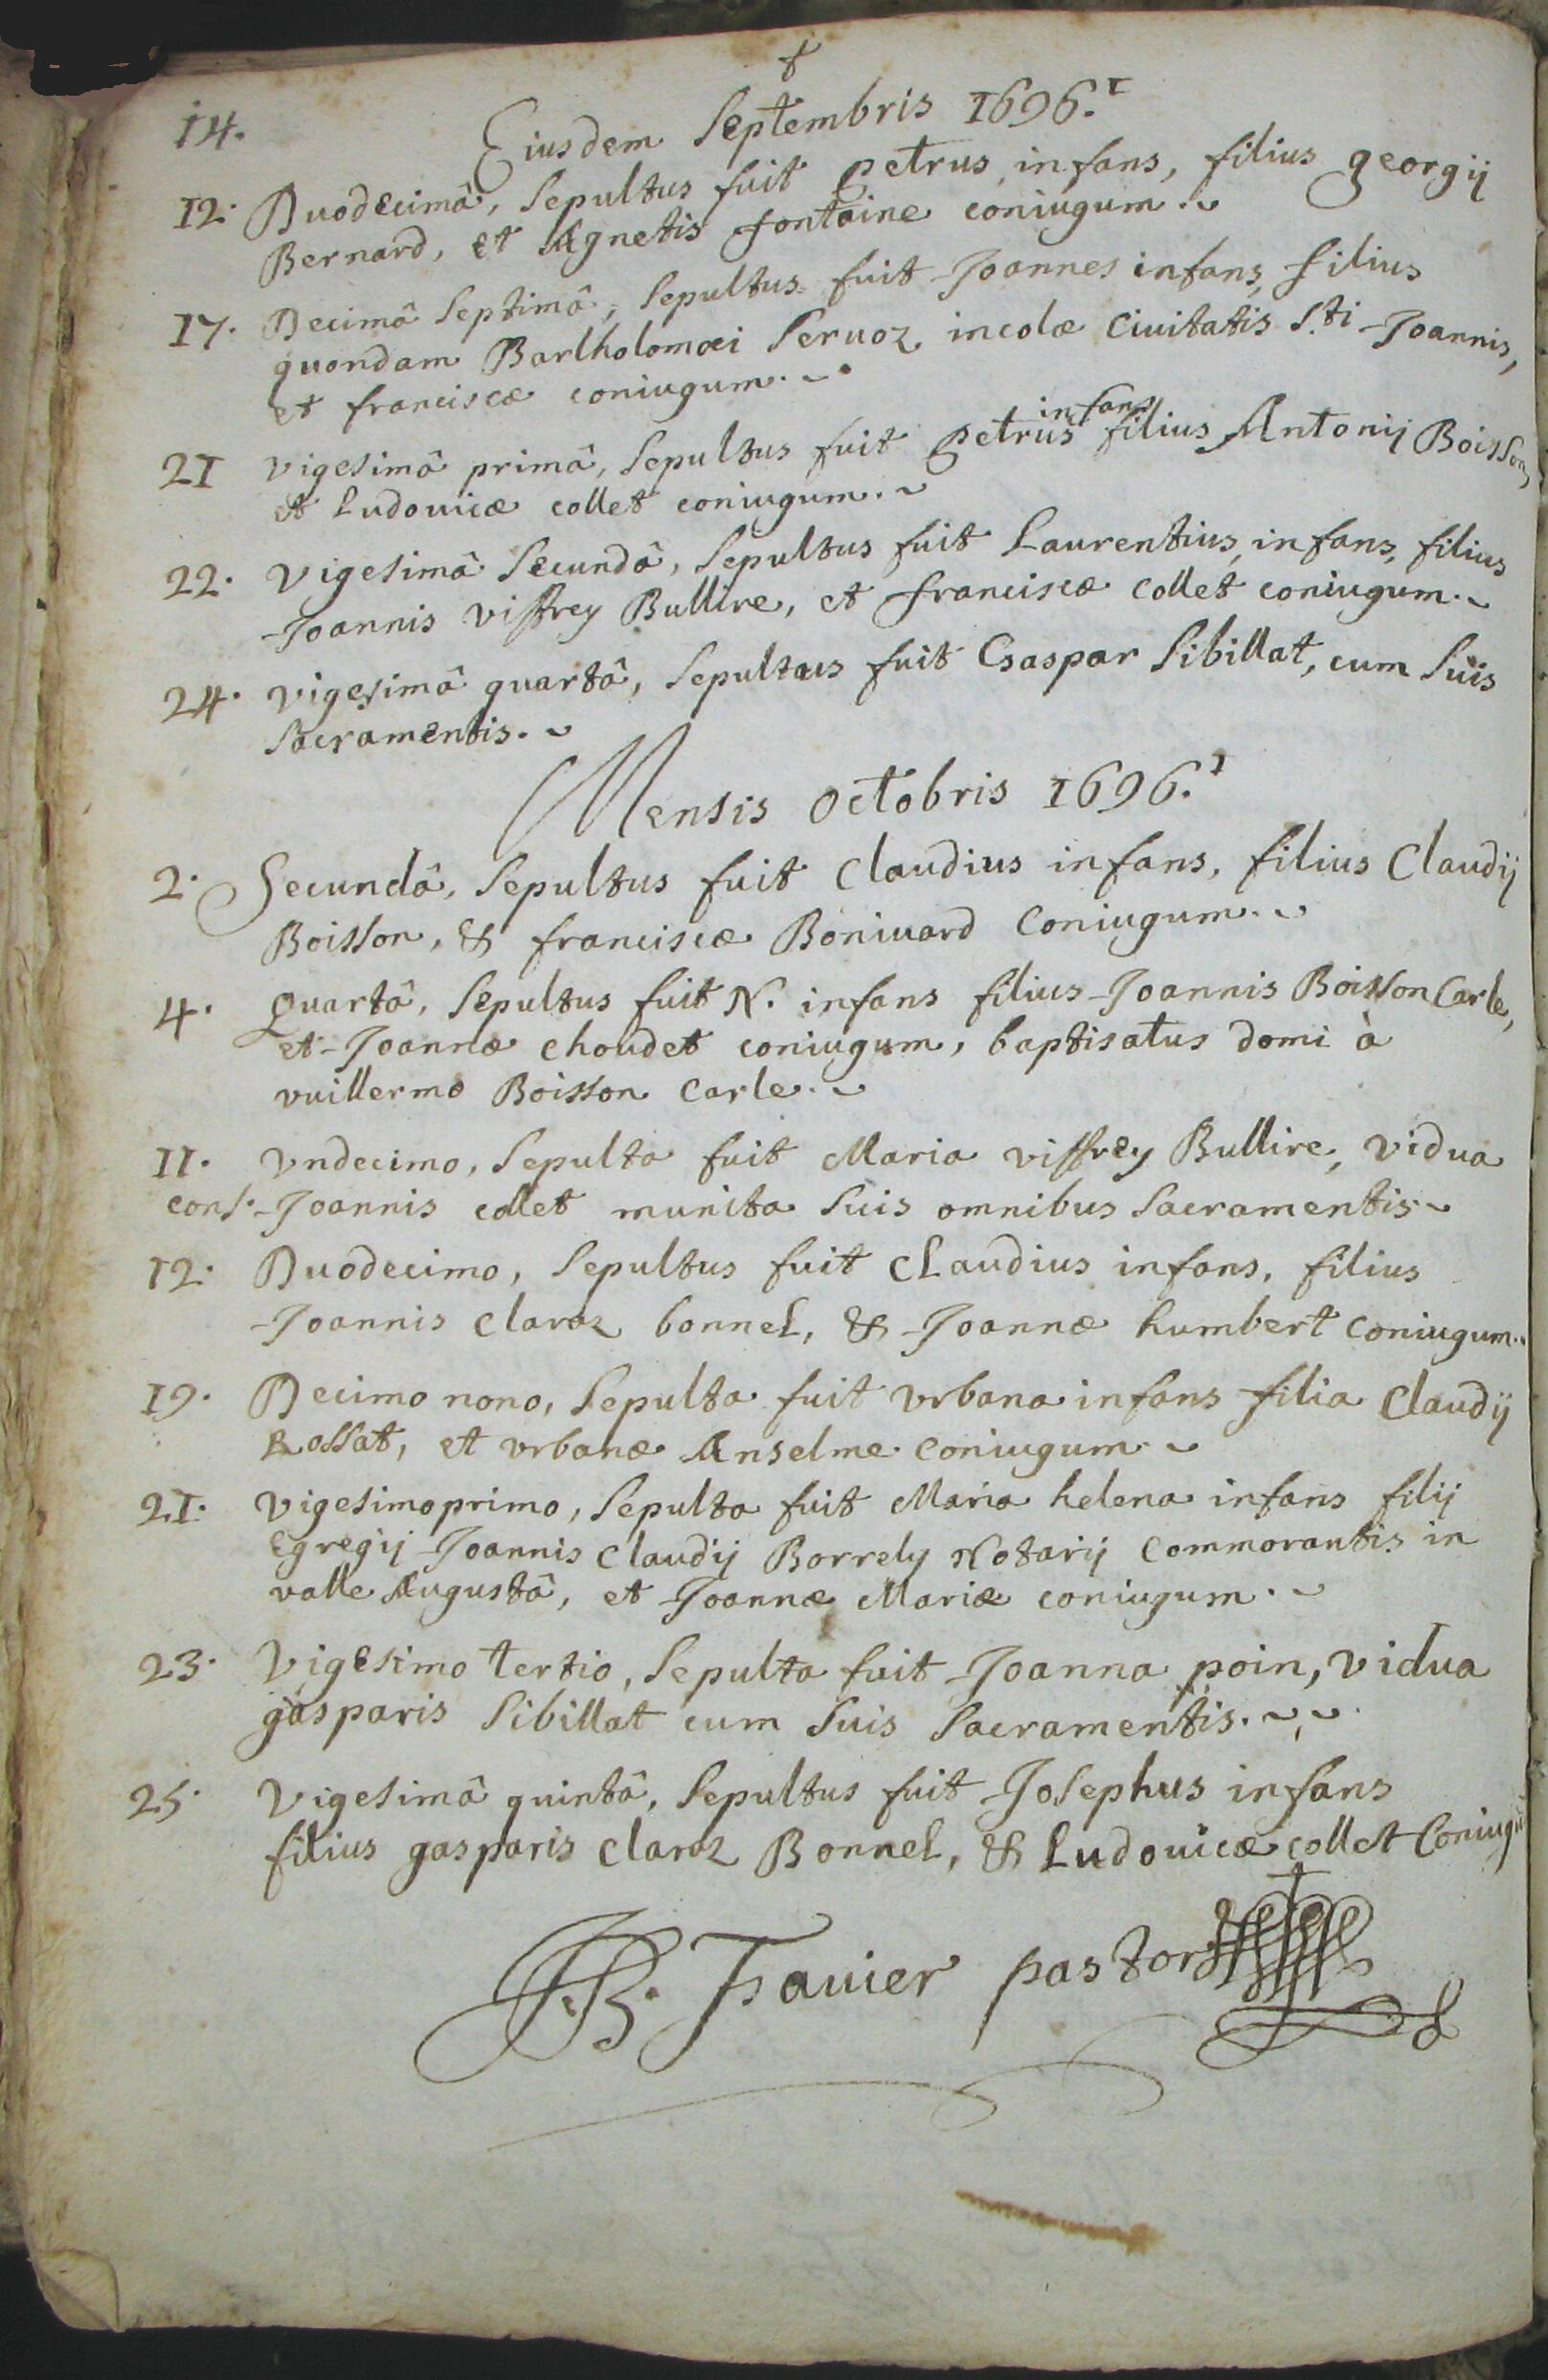 14.
Eiusdem Septembris 1696.
12. Duodecimâ, Sepultus fuit petrus, infans, filius georgij
Bernard, et Agnetis fontaine coniugum.
17. Decimâ Septimâ, Sepultus fuit Joannes infans, filius
quondam Bartholomæi Seruoz incolæ Ciuitatis S.ti Joannis,
et franciscæ coniugum.
21 vigesimâ primâ, Sepultus fuit petrus infans filius Antonij Boisson,
et Ludouicæ collet coniugum.
22. vigesimâ Secundâ, Sepultus fuit Laurentius, infans, filius
Joannis viffrey Bullire, et franciscæ collet coniugum.
24. vigesimâ quartâ, Sepultus fuit Gaspar Sibillat, cum Suis
Sacramentis.
Mensis octobris 1696.
2. Secundâ, Sepultus fuit Claudius infans, filius Claudij
Boisson, & franciscæ Boniuard Coniugum.
4. Quartâ, Sepultus fuit N. infans filius Joannis Boisson Carle,
et Joannæ choudet coniugum, baptisatus domi à
vuillermo Boisson Carle.
11. vndecimo, Sepulta fuit Maria viffrey Bullire, vidua
cons. Joannis collet munita Suis omnibus Sacramentis
12. Duodecimo, Sepultus fuit CLaudius infans, filius
Joannis claraz bonneL, & Joannæ humbert Coniugum.
19. Decimo nono, Sepulta fuit vrbana infans filia Claudij
Rossat, et vrbanæ Anselme Coniugum.
21. vigesimoprimo, Sepulta fuit Maria helena infans filij
Egregij Joannis Claudij Borrely Notarij Commorantis in
valle Augustâ, et Joannæ Mariæ coniugum.
23. Vigesimo tertio, Sepulta fuit Joanna poin, vidua
gasparis Sibillat cum Suis Sacramentis.
25. Vigesimâ quintâ, Sepultus fuit Josephus infans
filius gasparis claraz BonneL, & Ludouicæ collet Coniugũ
JB. Fauier pastor